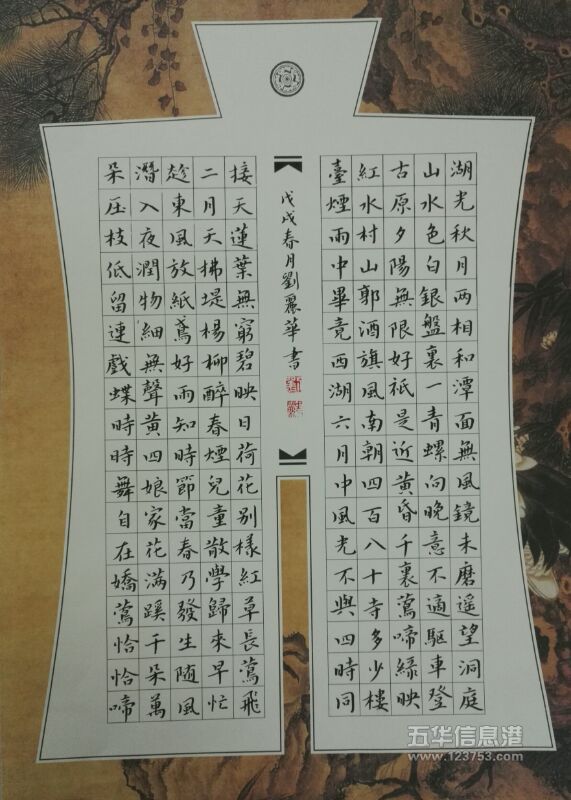 湖光秋月兩相和潭面無風鏡未磨遙望洞庭
山水色白銀盤裏一青螺向晚意不適驅車登
古原夕陽無限好祇是近黃昏千裏鶯啼綠映
紅水村山郭酒旗風南朝四百八十寺多少樓
臺煙雨中畢竟西湖六月中風光不與四時同
戊戌春月劉麗華書
接天蓮葉無窮碧映日荷花別樣紅草長鶯飛
二月天拂堤楊柳醉春煙兒童散學歸來早忙
趁東風放紙鳶好雨知時節當春乃發生随風
潛入夜潤物細無聲黃四娘家花滿蹊千朵萬
朵压枝低留連戲蝶時時舞自在嬌鶯恰恰啼
五华信息港
www.123753.com